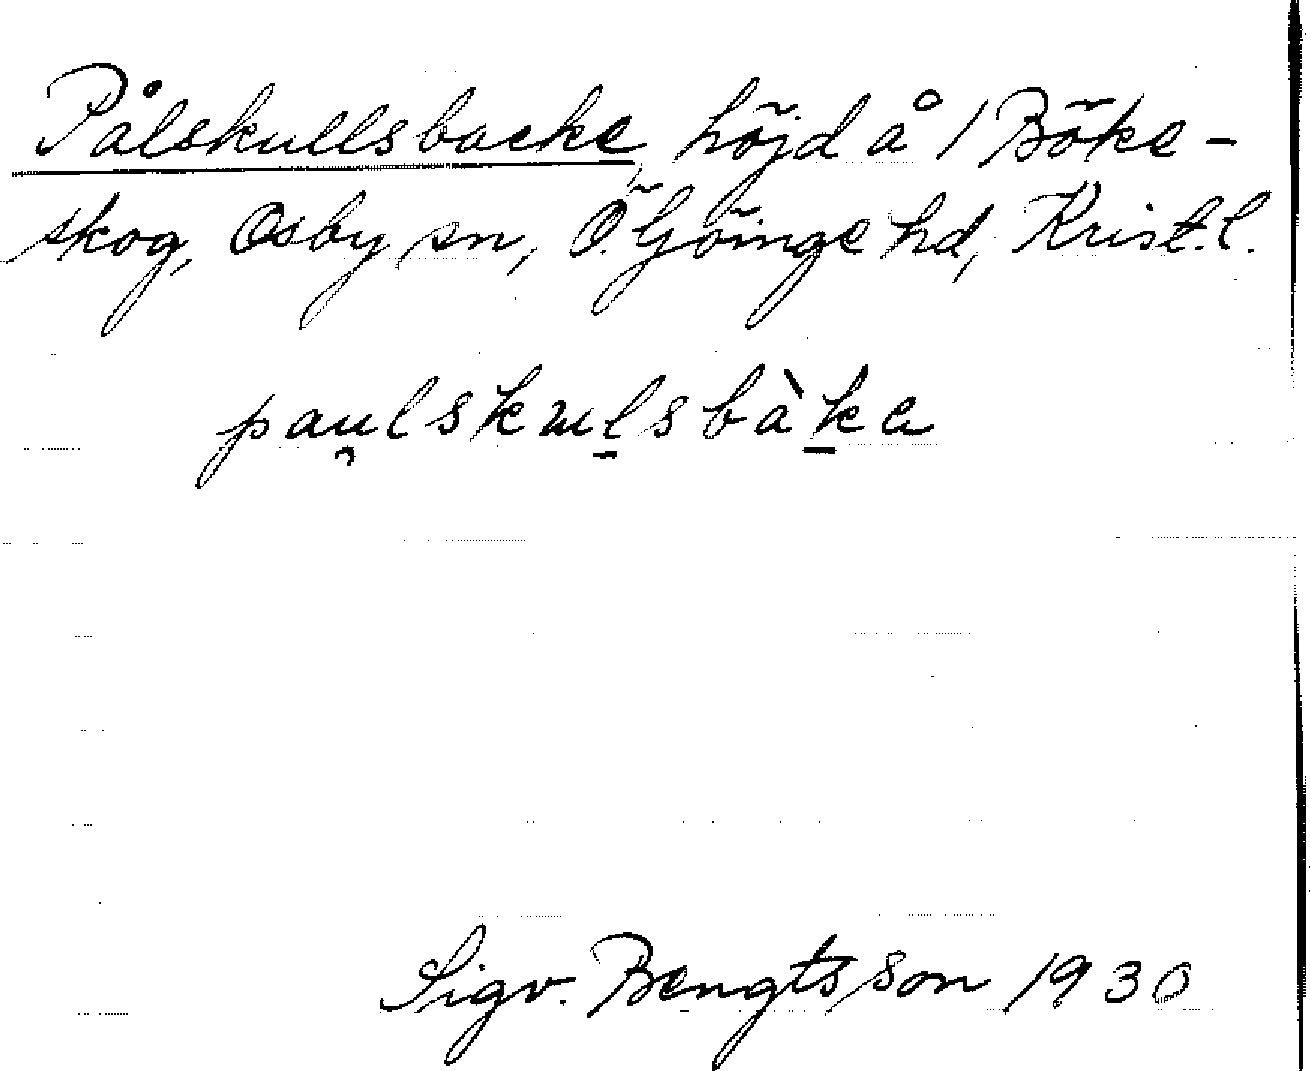 Pålskullsbacke, höjd å 1 Böke-
skog, Osby sn, Ö. Göinge hd, Krist. l.
pau̯lskɯl̠sbàk̠a
Sigv. Bengtsson 1930